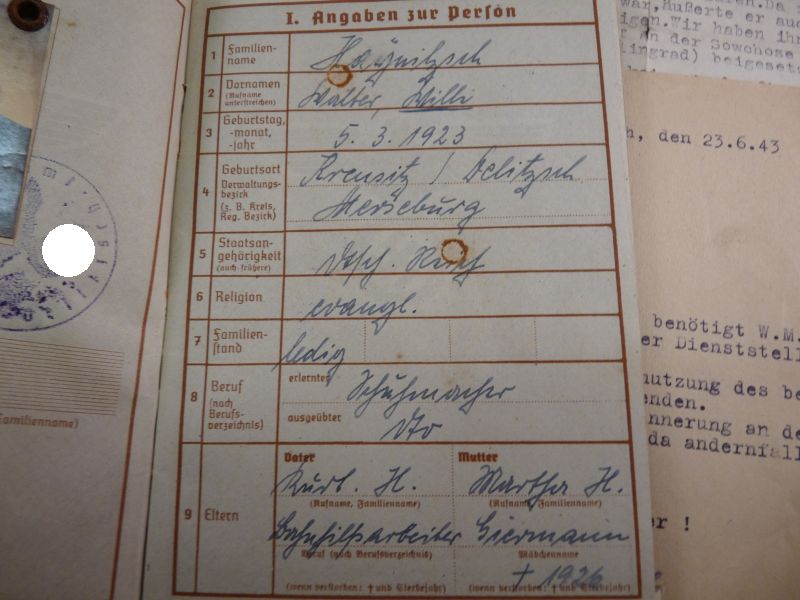 I. Angaben zur Person
1 Familien-
name
Haynitzsch
2 Vornamen
(Rufname
unterstreichen)
Walter, Willi
3 Geburtstag,
-monat,
-jahr
5. 3. 1923
4 Geburtsort
Verwaltungs-
bezirk
(z. B. Kreis,
Reg. Bezirk)
Kreusitz / Delitzsch
Merseburg
5 Staatsan-
gehörigkeit
(auch frühere)
Dtsch. Reich
6 Religion
evangl.
7 Familien-
stand
ledig
8 Beruf
(nach
Berufs-
verzeichnis)
erlernter
Schuhmacher
ausgeübter
dto
9 Eltern
Vater
Kurt. H.
(Rufname, Familienname)
Bahnhilfsarbeiter
Beruf (nach Berufsverzeichnis)
(wenn verstorben: † und Sterbejahr)
Mutter
Martha H.
(Rufname, Familienname)
Giermann
Mädchenname
† 1926
(wenn verstorben: † und Sterbejahr)
Familienname)
war, äußerte er auc
igen. Wir haben ihr
an der Sowchose
lingrad) beigesetz
h, den 23.6.43
benötigt W.M.
er Dienststell
nutzung des be
enden.
nnerung an de
da andernfall
er !